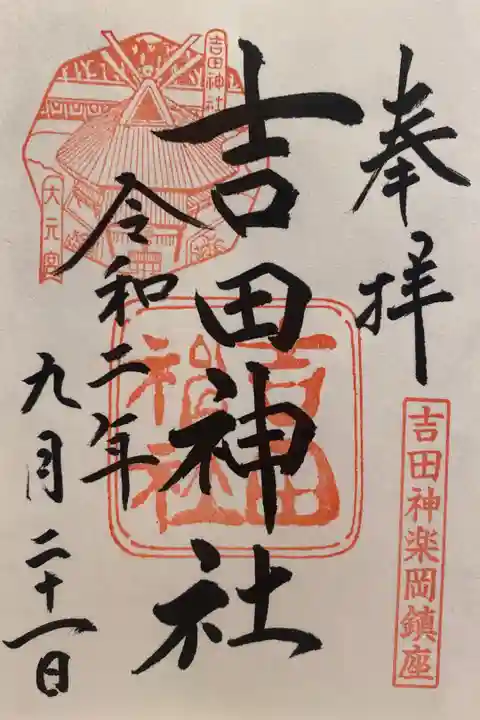 奉拝
吉田神楽岡鎮座
吉田神社
吉田
神社
吉田神社
大元宮
令和二年
九月二十一日